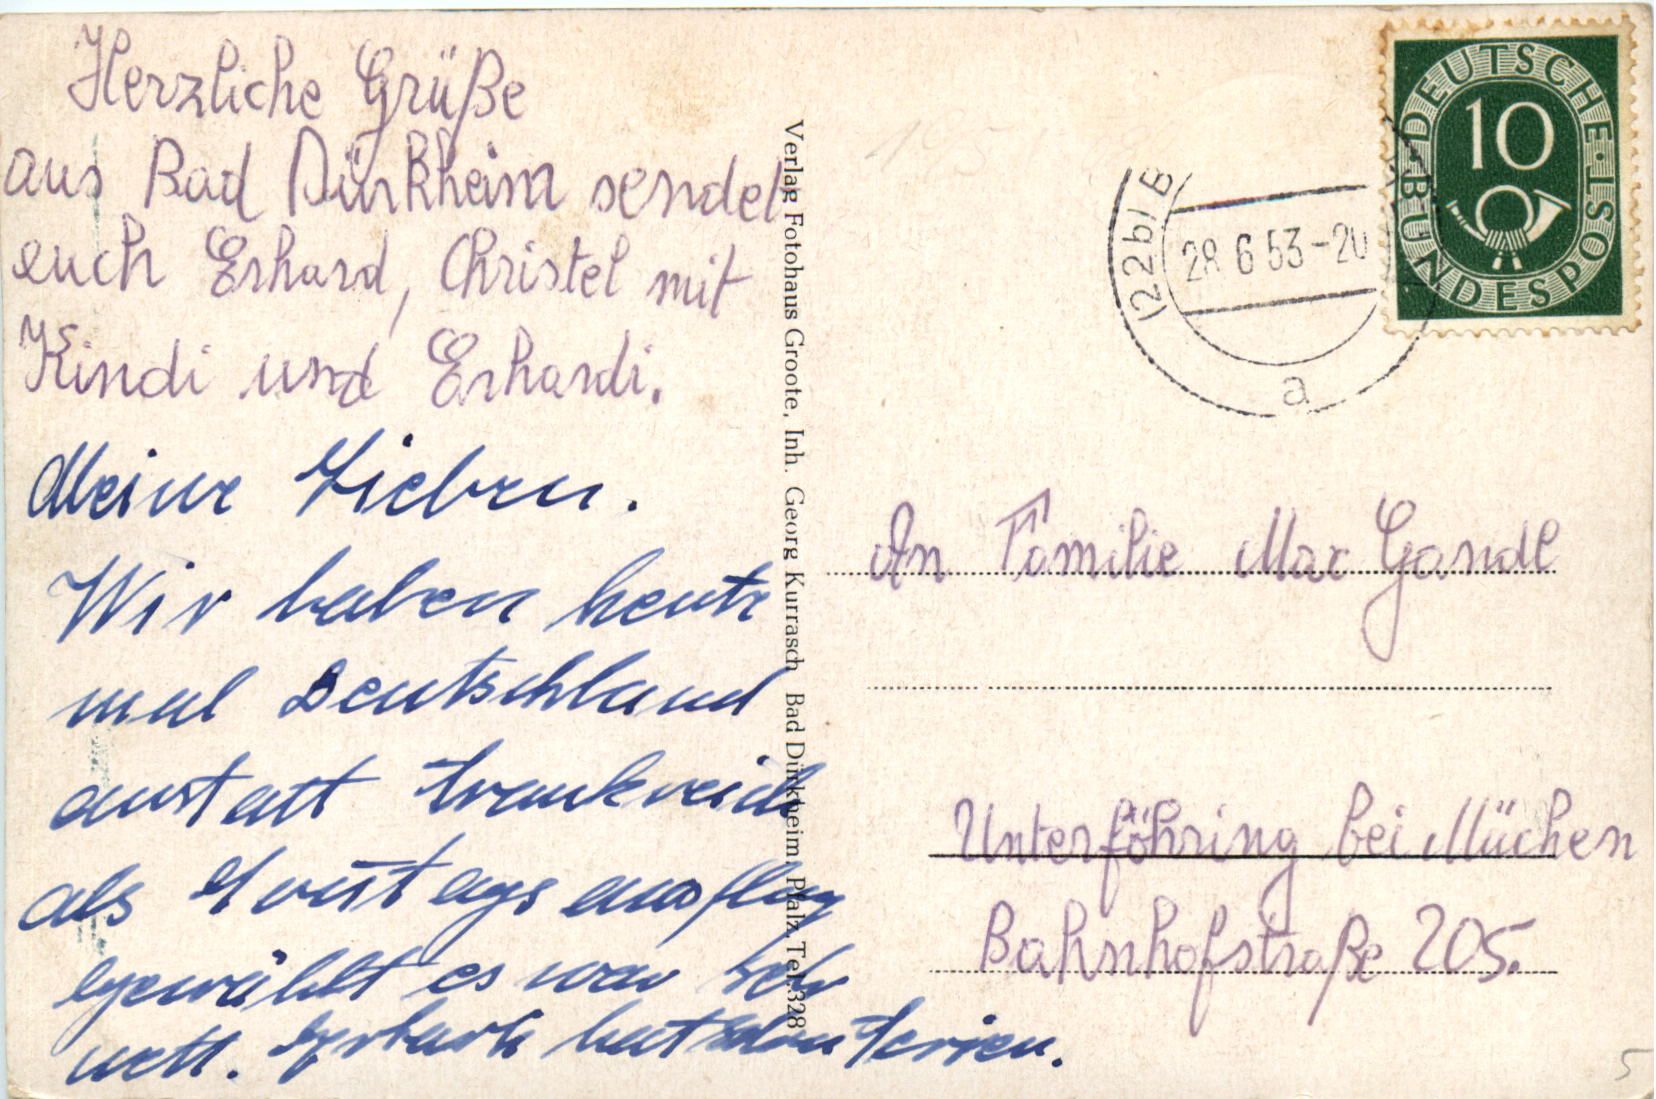 Herzliche Grüße
aus Bad Dürkheim sendet
euch Erhard, Christel mit
Kindi und Erhardi.
Meine Lieben.
Wir haben heute
mal Deutschland
anstatt Frankreich
als Sonntagsausflug
gewählt es war sehr
nett. Erhardi hat schon Ferien.
Verlag Fotohaus Groote, Inh. Georg Kurrasch Bad Dürkheim, Pfalz, Tel. 328
DEUTSCHE BUNDESPOST
10
(22b) B
28.6.53-20
a
An Familie Max Gandl
Unterföhring bei Müchen
Bahnhofstraße 205.
5